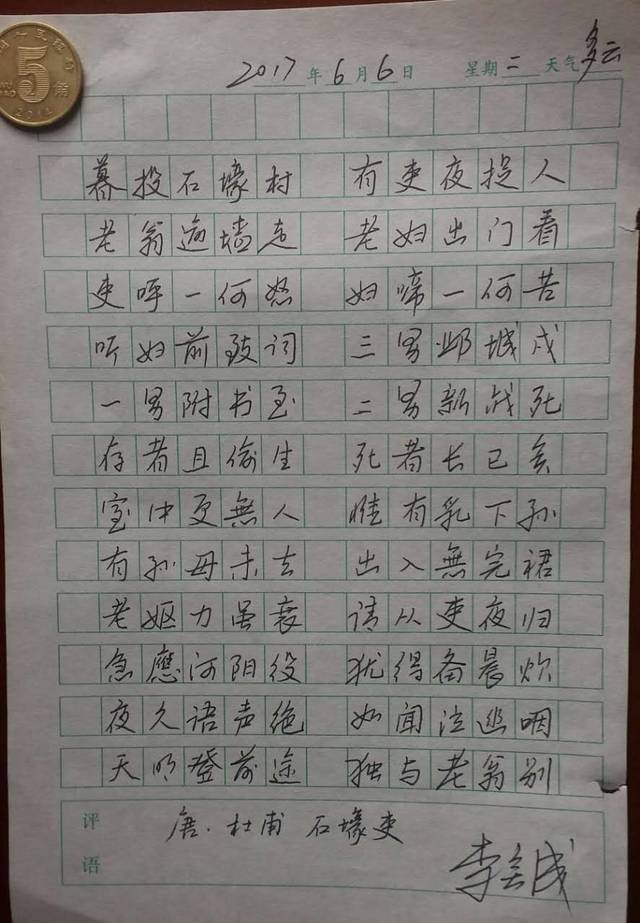 5角
2017年6月6日 星期二 天气多云
暮投石壕村 有吏夜捉人
老翁逾墙走 老妇出门看
吏呼一何怒 妇啼一何苦
听妇前致词 三男邺城戍
一男附书至 二男新战死
存者且偷生 死者长已矣
室中更無人 惟有乳下孙
有孙母未去 出入無完裙
老妪力虽衰 请从吏夜归
急應河阳役 犹得备晨炊
夜久语声绝 如闻泣幽咽
天明登前途 独与老翁别
评语 唐·杜甫 石壕吏